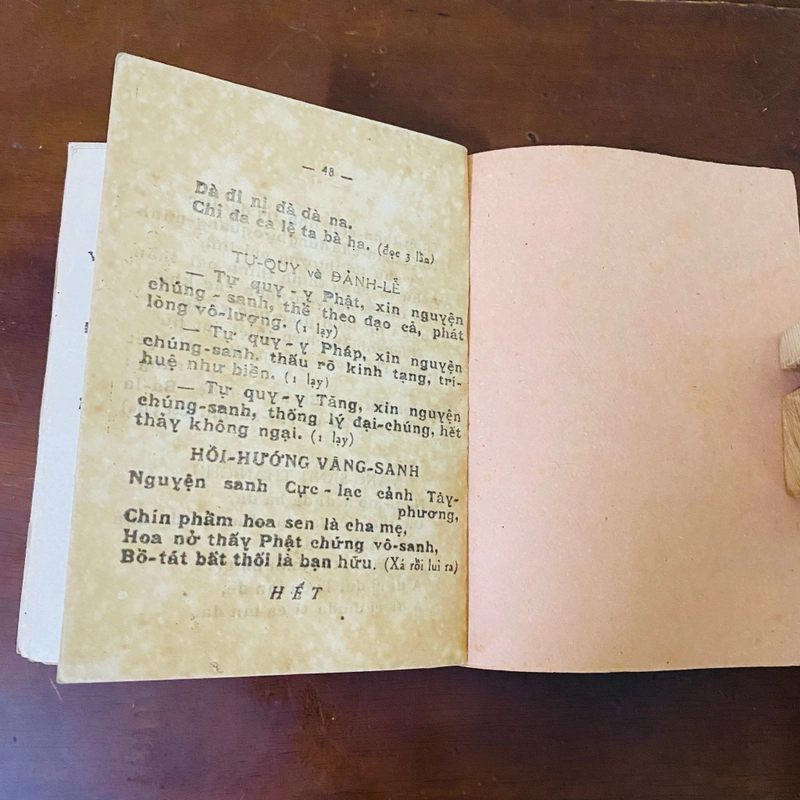 — 48 —
Dà đi nị đà dà na.
Chi đa ca lệ ta bà ha. (đọc 3 lần)
TỰ-QUY và ĐẢNH-LỄ
— Tự quy-y Phật, xin nguyện
chúng-sanh, thề theo đạo cả, phát
lòng vô-lượng. (1 lạy)
— Tự quy-y Pháp, xin nguyện
chúng-sanh, thấu rõ kinh tạng, trí-
huệ như biển. (1 lạy)
— Tự quy-y Tăng, xin nguyện
chúng-sanh, thống lý đại-chúng, hết
thảy không ngại. (1 lạy)
HỒI-HƯỚNG VÃNG-SANH
Nguyện sanh Cực-lạc cảnh Tây-
phương,
Chín phẩm hoa sen là cha mẹ,
Hoa nở thấy Phật chứng vô-sanh,
Bồ-tát bất thối là bạn hữu. (Xá rồi lui ra)
HẾT